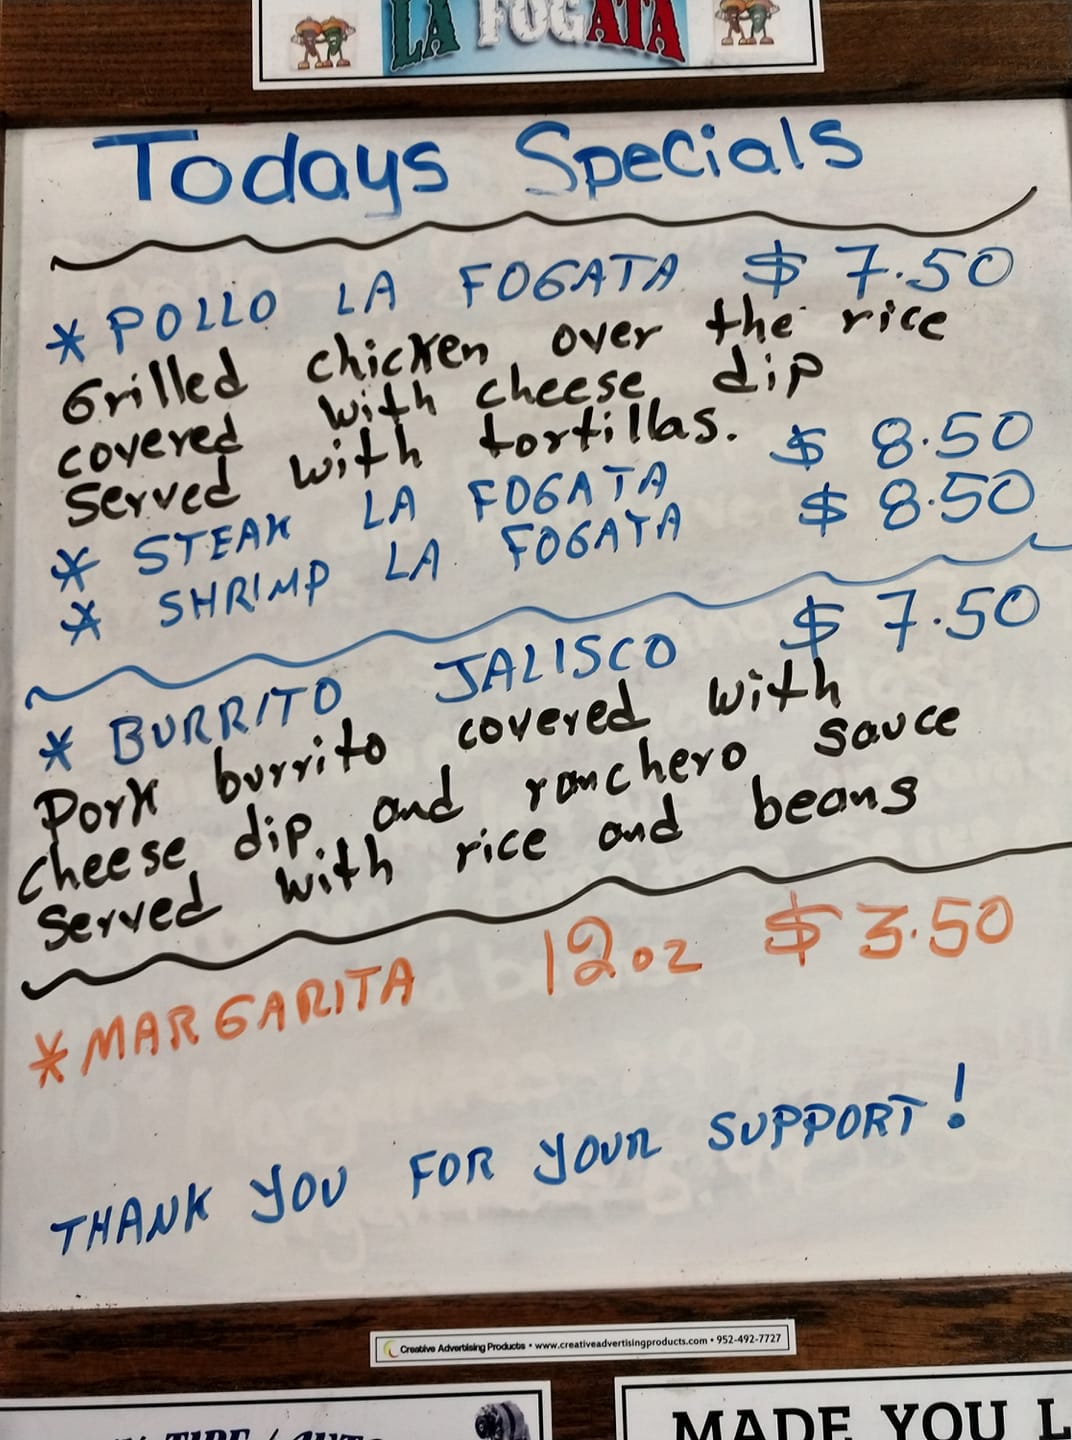 LA FOGATA
Todays Specials
* POLLO LA FOGATA $ 7.50
Grilled chicken over the rice
covered with cheese dip
Served with tortillas.
* STEAK LA FOGATA $ 8.50
* SHRIMP LA FOGATA $ 8.50
* BURRITO JALISCO $ 7.50
Pork burrito covered with
cheese dip and ranchero sauce
Served with rice and beans
* MARGARITA 12oz $ 3.50
THANK YOU FOR YOUR SUPPORT!
Creative Advertising Products • www.creativeadvertisingproducts.com • 952-492-7727
TIRE / AUTO
MADE YOU L